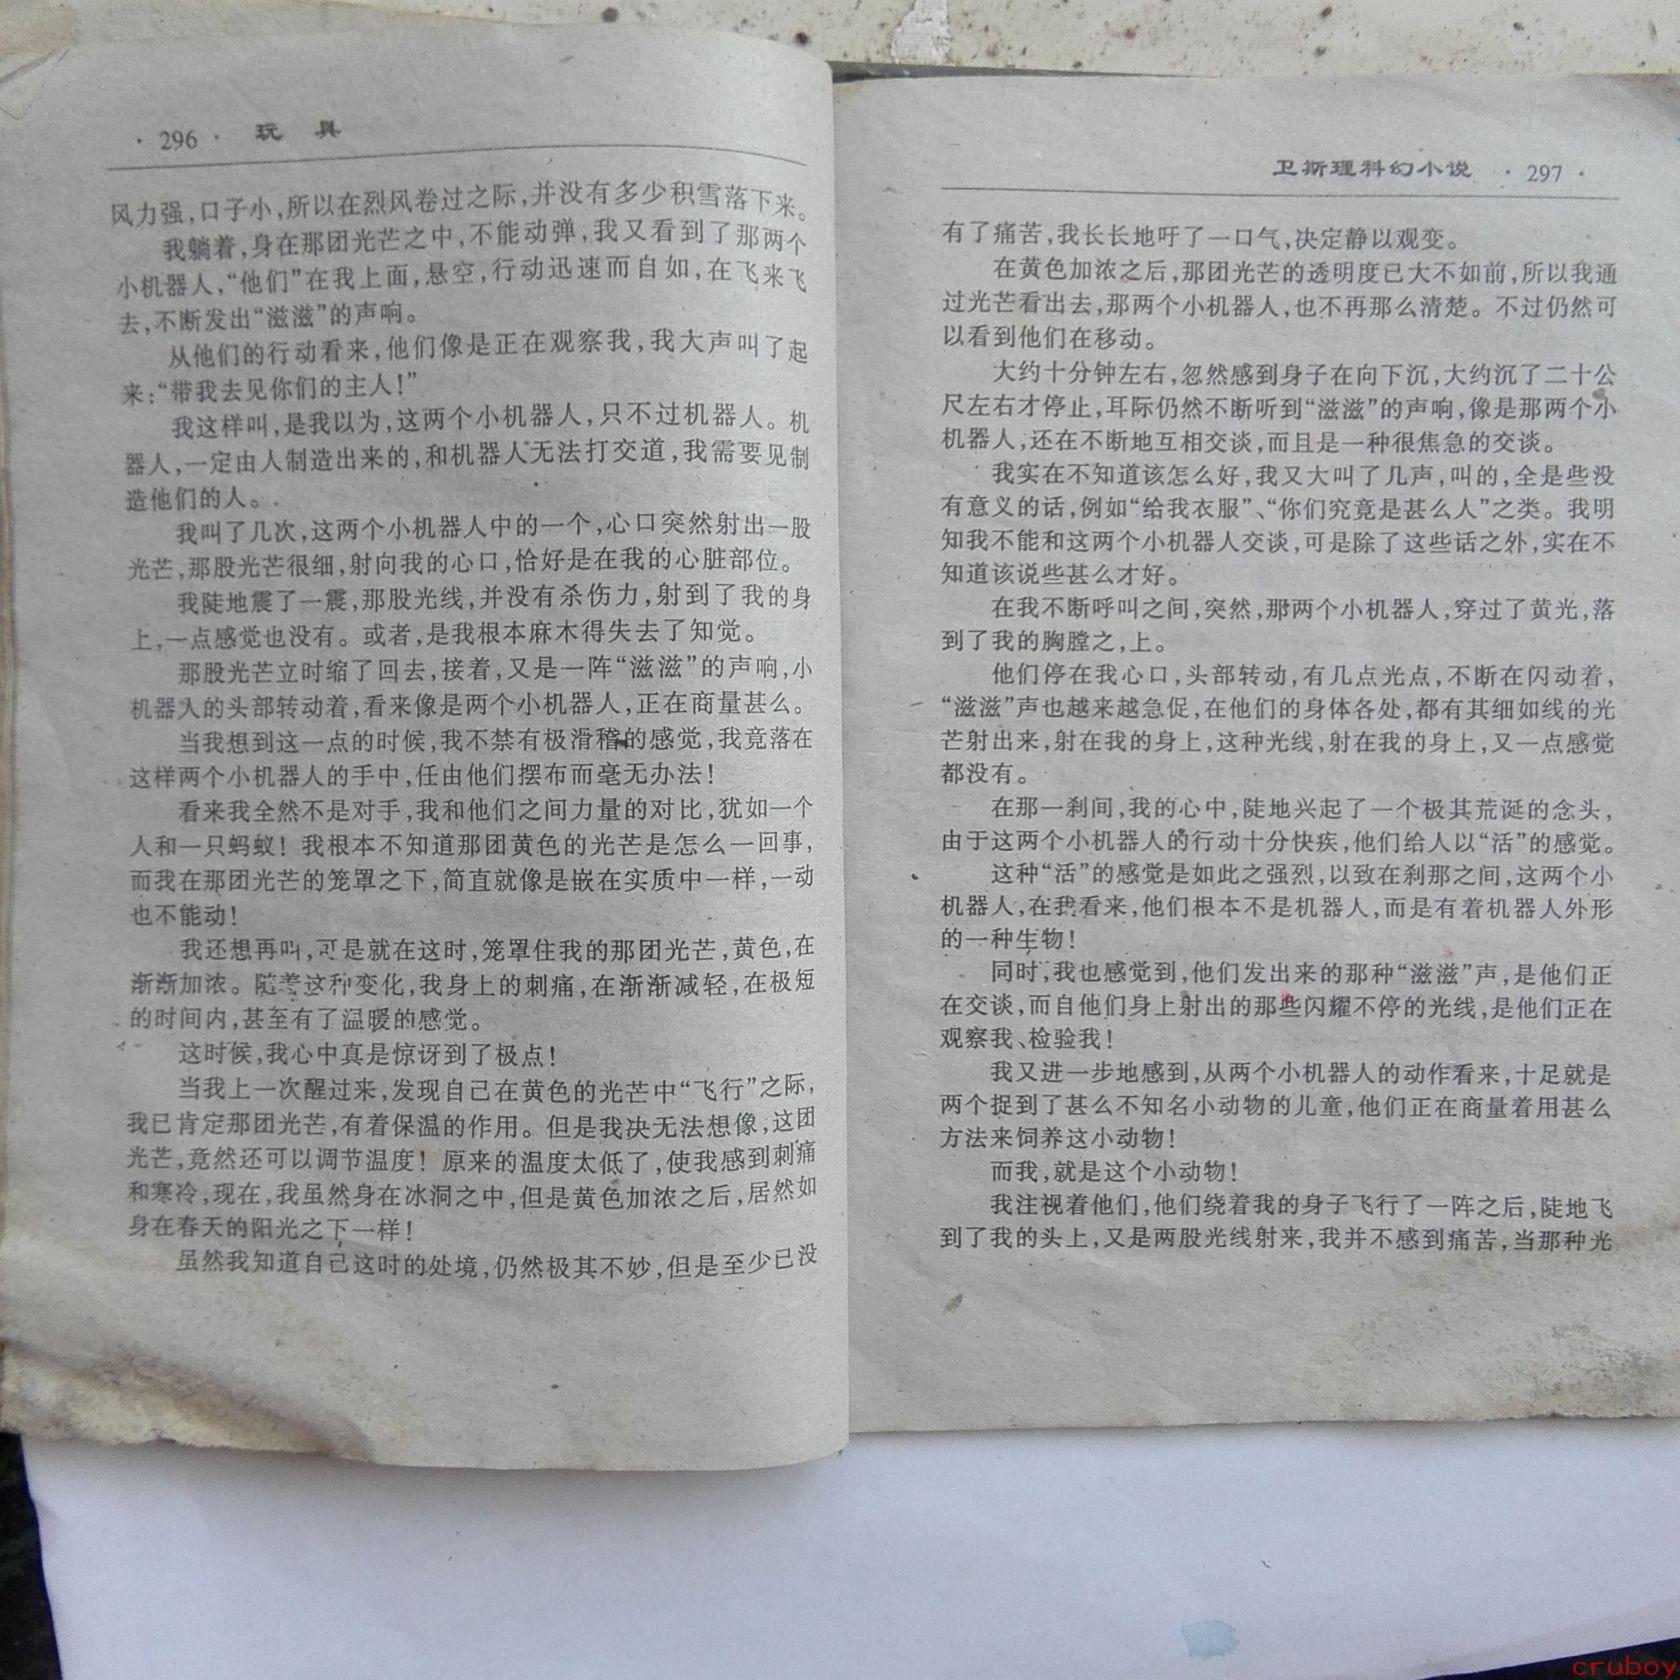 ·296· 玩 具
风力强,口子小,所以在烈风卷过之际,并没有多少积雪落下来。
我躺着,身在那团光芒之中,不能动弹,我又看到了那两个
小机器人,“他们”在我上面,悬空,行动迅速而自如,在飞来飞
去,不断发出“滋滋”的声响。
从他们的行动看来,他们像是正在观察我,我大声叫了起
来:“带我去见你们的主人!”
我这样叫,是我以为,这两个小机器人,只不过机器人。机
器人,一定由人制造出来的,和机器人无法打交道,我需要见制
造他们的人。
我叫了几次,这两个小机器人中的一个,心口突然射出一股
光芒,那股光芒很细,射向我的心口,恰好是在我的心脏部位。
我陡地震了一震,那股光线,并没有杀伤力,射到了我的身
上,一点感觉也没有。或者,是我根本麻木得失去了知觉。
那股光芒立时缩了回去,接着,又是一阵“滋滋”的声响,小
机器人的头部转动着,看来像是两个小机器人,正在商量甚么。
当我想到这一点的时候,我不禁有极滑稽的感觉,我竟落在
这样两个小机器人的手中,任由他们摆布而毫无办法!
看来我全然不是对手,我和他们之间力量的对比,犹如一个
人和一只蚂蚁!我根本不知道那团黄色的光芒是怎么一回事,
而我在那团光芒的笼罩之下,简直就像是嵌在实质中一样,一动
也不能动!
我还想再叫,可是就在这时,笼罩住我的那团光芒,黄色,在
渐渐加浓。随着这种变化,我身上的刺痛,在渐渐减轻,在极短
的时间内,甚至有了温暖的感觉。
这时候,我心中真是惊讶到了极点!
当我上一次醒过来,发现自己在黄色的光芒中“飞行”之际,
我已肯定那团光芒,有着保温的作用。但是我决无法想像,这团
光芒,竟然还可以调节温度!原来的温度太低了,使我感到刺痛
和寒冷,现在,我虽然身在冰洞之中,但是黄色加浓之后,居然如
身在春天的阳光之下一样!
虽然我知道自己这时的处境,仍然极其不妙,但是至少已没
卫斯理科幻小说 ·297·
有了痛苦,我长长地吁了一口气,决定静以观变。
在黄色加浓之后,那团光芒的透明度已大不如前,所以我通
过光芒看出去,那两个小机器人,也不再那么清楚。不过仍然可
以看到他们在移动。
大约十分钟左右,忽然感到身子在向下沉,大约沉了二十公
尺左右才停止,耳际仍然不断听到“滋滋”的声响,像是那两个小
机器人,还在不断地互相交谈,而且是一种很焦急的交谈。
我实在不知道该怎么好,我又大叫了几声,叫的,全是些没
有意义的话,例如“给我衣服”、“你们究竟是甚么人”之类。我明
知我不能和这两个小机器人交谈,可是除了这些话之外,实在不
知道该说些甚么才好。
在我不断呼叫之间,突然,那两个小机器人,穿过了黄光,落
到了我的胸膛之,上。
他们停在我心口,头部转动,有几点光点,不断在闪动着,
“滋滋”声也越来越急促,在他们的身体各处,都有其细如线的光
芒射出来,射在我的身上,这种光线,射在我的身上,又一点感觉
都没有。
在那一刹间,我的心中,陡地兴起了一个极其荒诞的念头,
由于这两个小机器人的行动十分快疾,他们给人以“活”的感觉。
这种“活”的感觉是如此之强烈,以致在刹那之间,这两个小
机器人,在我看来,他们根本不是机器人,而是有着机器人外形
的一种生物!
同时,我也感觉到,他们发出来的那种“滋滋”声,是他们正
在交谈,而自他们身上射出的那些闪耀不停的光线,是他们正在
观察我、检验我!
我又进一步地感到,从两个小机器人的动作看来,十足就是
两个捉到了甚么不知名小动物的儿童,他们正在商量着用甚么
方法来饲养这小动物!
而我,就是这个小动物!
我注视着他们,他们绕着我的身子飞行了一阵之后,陡地飞
到了我的头上,又是两股光线射来,我并不感到痛苦,当那种光
cruboy